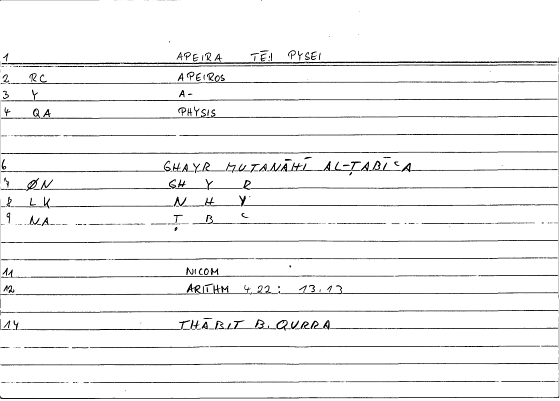 1 APEIRA TĒI PYSEI
2 RC APEIROS
3 Y A-
4 QA PHYSIS
6 GHAYR MUTANĀHĪ AL-ṬABĪʿA
7 ØN GH Y R
8 LK N H Y
9 NA Ṭ B ʿ
11 NICOM
12 ARITHM 4,22 : 13.13
14 THĀBIT B. QURRA